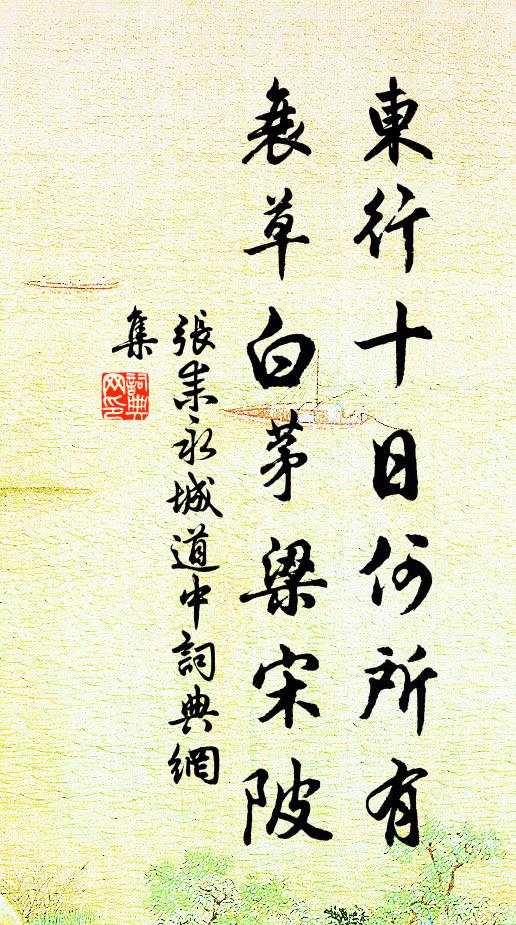 東行十日何所有
衰草白茅梁宋陂
張耒永城道中詞典網
集
詞典網印